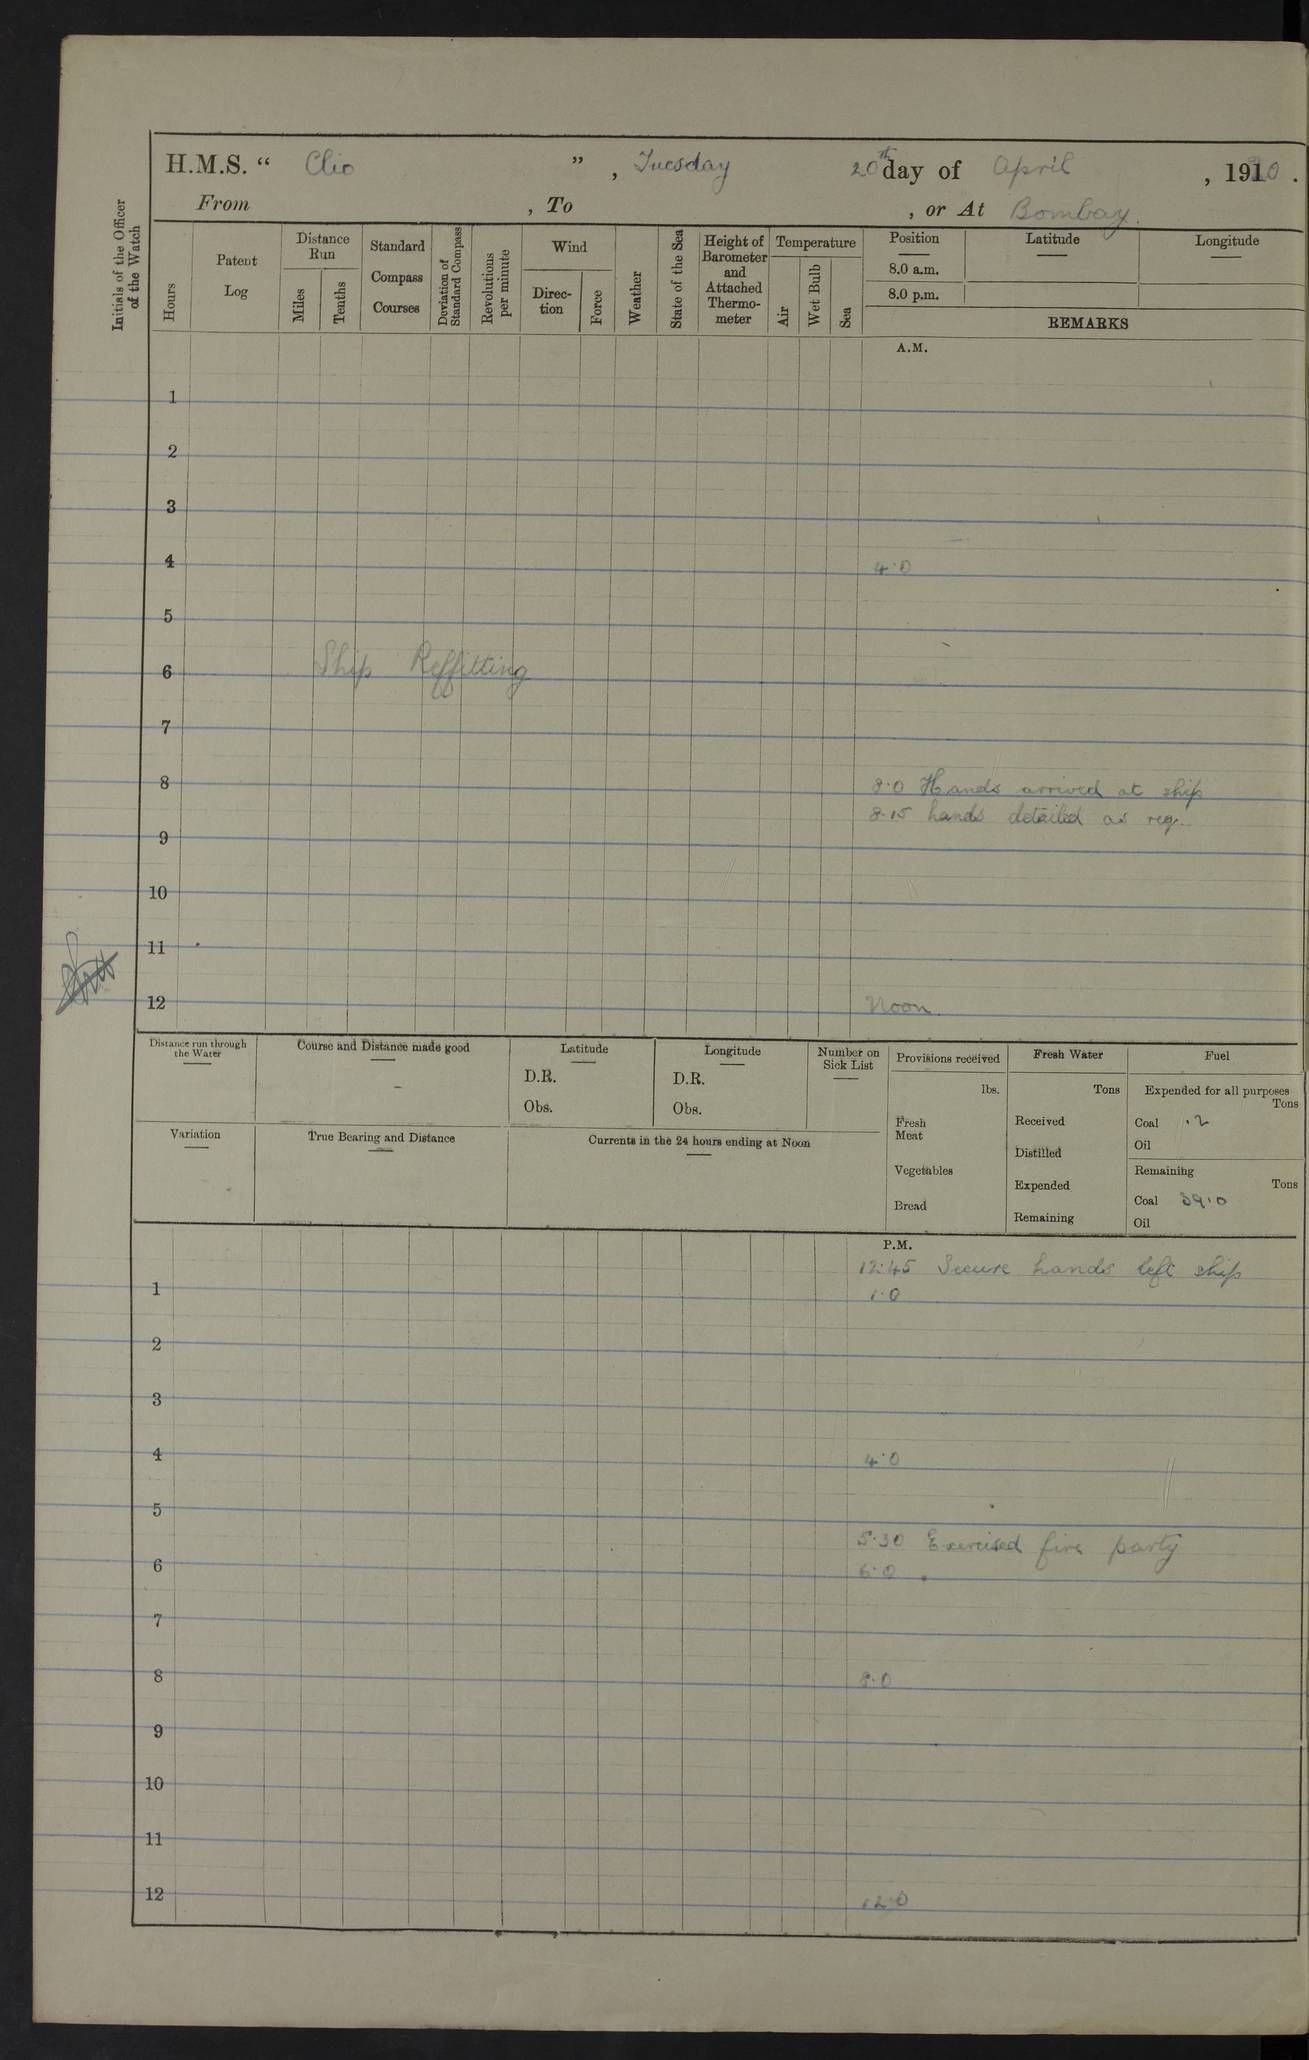 H.M.S. “ Clio ” , Tuesday 20th day of April , 1910 .
From , To , or At Bombay.
Initials of the Officer of the Watch
Hours
Patent Log
Distance Run
Miles
Tenths
Standard Compass Courses
Deviation of Standard Compass
Revolutions per minute
Wind
Direc-tion
Force
Weather
State of the Sea
Height of Barometer and Attached Thermo-meter
Temperature
Air
Wet Bulb
Sea
Position
8.0 a.m.
8.0 p.m.
Latitude
Longitude
REMARKS
A.M.
1
2
3
4 4.0
5
6 Ship Reffitting
7
8 8.0 Hands arrived at ship
8.15 hands detailed as req.
9
10
11
12 Noon
Distance run through the Water
Course and Distance made good
Latitude
D.R.
Obs.
Longitude
D.R.
Obs.
Number on Sick List
Variation
True Bearing and Distance
Currents in the 24 hours ending at Noon
Provisions received
lbs.
Fresh Meat
Vegetables
Bread
Fresh Water
Tons
Received
Distilled
Expended
Remaining
Fuel
Expended for all purposes
Tons
Coal .2
Oil
Remaining
Tons
Coal 39.0
Oil
P.M.
12.45 Secure hands left ship
1 1.0
2
3
4 4.0
5
5.30 Exercised fire party
6 6.0
7
8 8.0
9
10
11
12 12.0